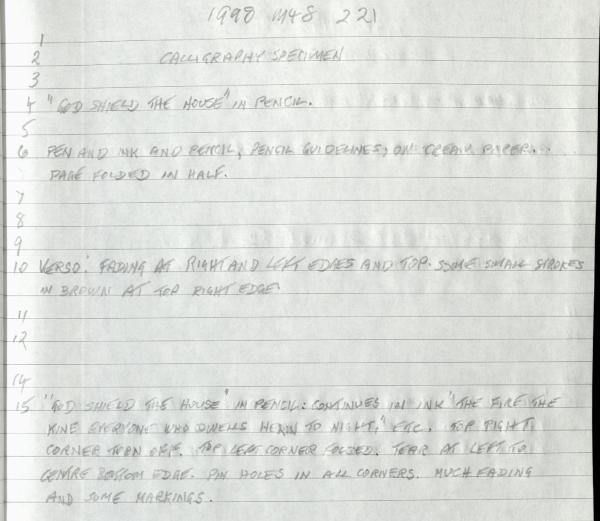 1998 M48 221
1
2 CALLIGRAPHY SPECIMEN
3
4 "GOD SHIELD THE HOUSE" IN PENCIL.
5
6 PEN AND INK AND PENCIL, PENCIL GUIDELINES, ON CREAM PAPER.
PAGE FOLDED IN HALF.
7
8
9
10 VERSO: FADING AT RIGHT AND LEFT EDGES AND TOP. SOME SMALL STROKES
IN BROWN AT TOP RIGHT EDGE.
11
12
14
15 "GOD SHIELD THE HOUSE" IN PENCIL: CONTINUES IN INK "THE FIRE THE
KINE EVERYONE WHO DWELLS HEREIN TO NIGHT," ETC. TOP RIGHT
CORNER TORN OFF. TOP LEFT CORNER FOLDED. TEAR AT LEFT TO
CENTRE BOTTOM EDGE. PIN HOLES IN ALL CORNERS. MUCH FADING
AND SOME MARKINGS.